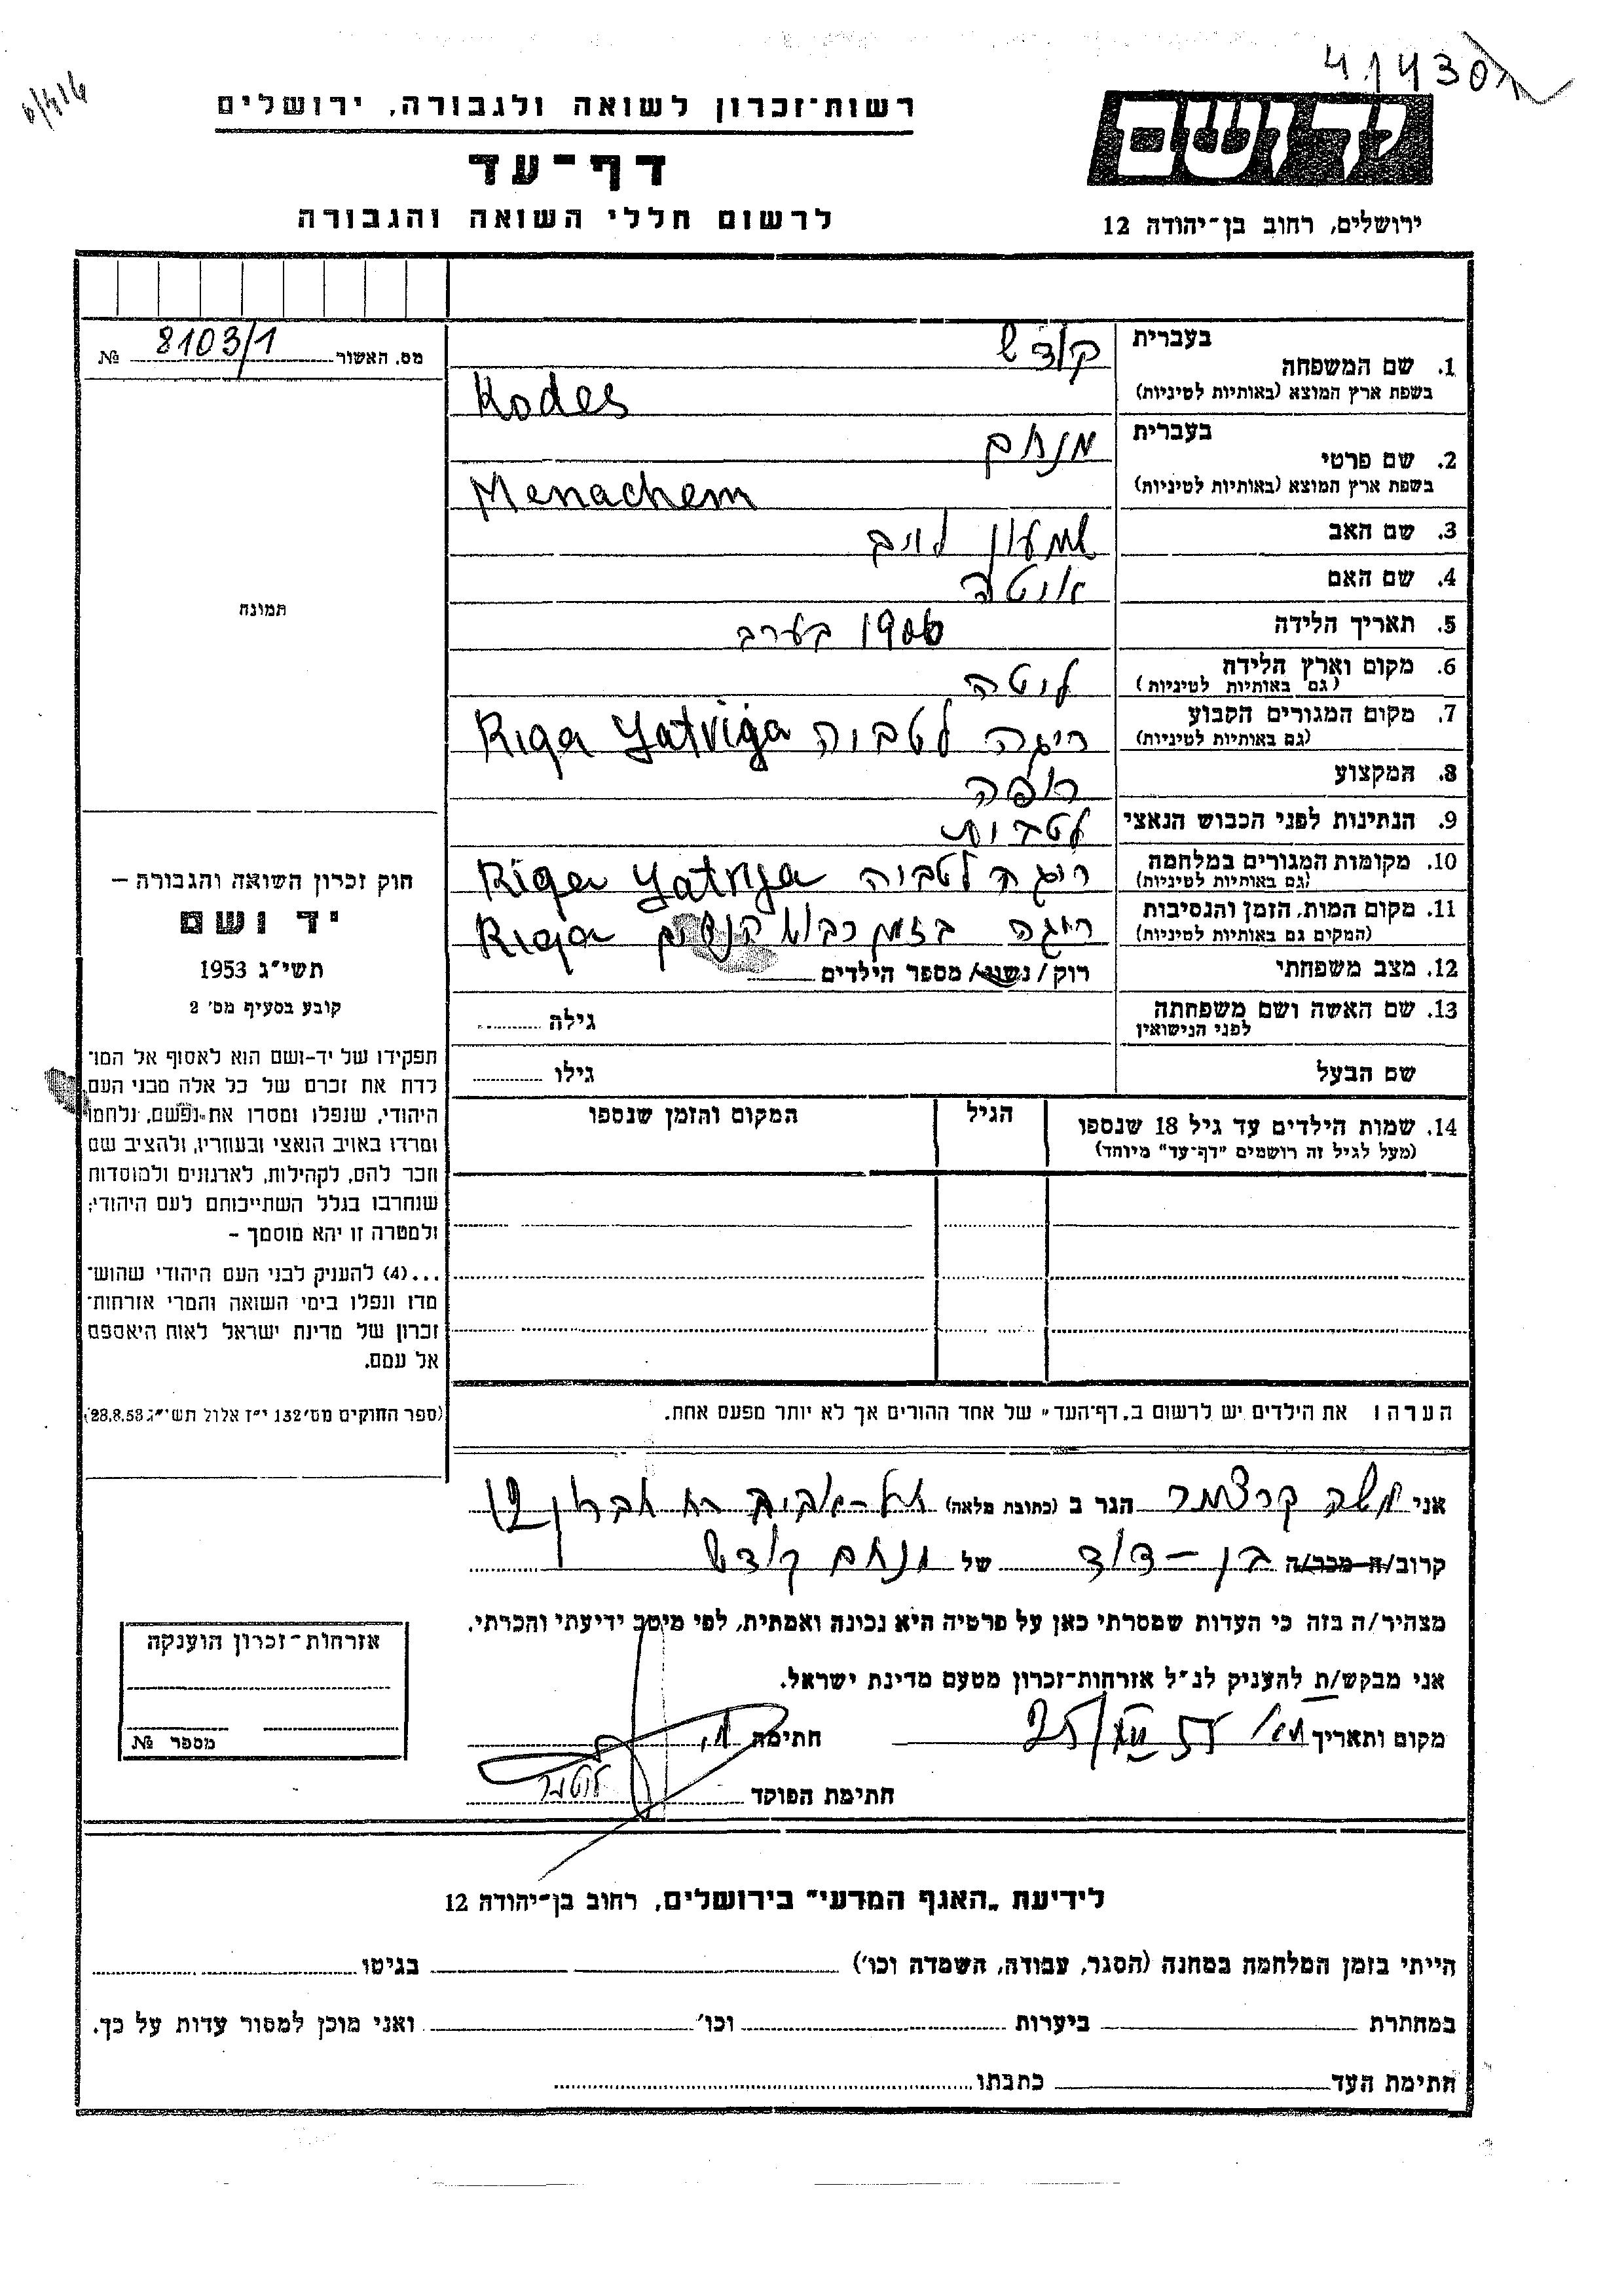 41430
רשות־זכרון לשואה ולגבורה, ירושלים
דף־עד
לרשום חללי השואה והגבורה
יד ושם
ירושלים, רחוב בן־יהודה 12
מס. האשור 8103/1 №
תמונה
חוק זכרון השואה והגבורה –
יד ושם
תשי״ג 1953
קובע בסעיף מס׳ 2
תפקידו של יד-ושם הוא לאסוף אל המו־
לדת את זכרם של כל אלה מבני העם
היהודי, שנפלו ומסרו את נפשם, נלחמו
ומרדו באויב הנאצי ובעוזריו, ולהציב שם
וזכר להם, לקהילות, לארגונים ולמוסדות
שנחרבו בגלל השתייכותם לעם היהודי;
ולמטרה זו יהא מוסמך –
...(4) להעניק לבני העם היהודי שהוש־
מדו ונפלו בימי השואה והמרי אזרחות־
זכרון של מדינת ישראל לאות היאספם
אל עמם.
(ספר החוקים מס׳ 132 י״ז אלול תשי״ג 28.8.53)
בעברית קודש
1. שם המשפחה
בשפת ארץ המוצא (באותיות לטיניות) Kodes
בעברית מנחם
2. שם פרטי
בשפת ארץ המוצא (באותיות לטיניות) Menachem
3. שם האב שמעון לייב
4. שם האם איטה
5. תאריך הלידה 1906 בערב
6. מקום וארץ הלידה ליטה
(גם באותיות לטיניות)
7. מקום המגורים הקבוע ריגה לטביה Riga Latvija
(גם באותיות לטיניות)
8. המקצוע רופה
9. הנתינות לפני הכבוש הנאצי לטבית
10. מקומות המגורים במלחמה ריגה לטביה Riga Latvija
(גם באותיות לטיניות)
11. מקום המות, הזמן והנסיבות ריגה בזמן כבוש הנצים Riga
(המקום גם באותיות לטיניות)
12. מצב משפחתי רוק / נשוי / מספר הילדים
13. שם האשה ושם משפחתה גילה
לפני הנישואין
שם הבעל גילו
14. שמות הילדים עד גיל 18 שנספו הגיל המקום והזמן שנספו
(מעל לגיל זה רושמים "דף־עד" מיוחד)
הערה: את הילדים יש לרשום ב„דף־העד" של אחד ההורים אך לא יותר מפעם אחת.
אני משה קרצמר הגר ב (כתובת מלאה) תל-אביב 12
קרוב/ה מכר/ה בן-דוד של מנחם קודש
מצהיר/ה בזה כי העדות שמסרתי כאן על פרטיה היא נכונה ואמתית, לפי מיטב ידיעתי והכרתי.
אני מבקש/ת להעניק לנ״ל אזרחות־זכרון מטעם מדינת ישראל.
מקום ותאריך חתימה
חתימת הפוקד
אזרחות־זכרון הוענקה
מספר №
לידיעת „האגף המדעי" בירושלים, רחוב בן־יהודה 12
הייתי בזמן המלחמה במחנה (הסגר, עבודה, השמדה וכו׳) בגיטו
במחתרת ביערות וכו׳ ואני מוכן למסור עדות על כך.
חתימת העד כתבתו